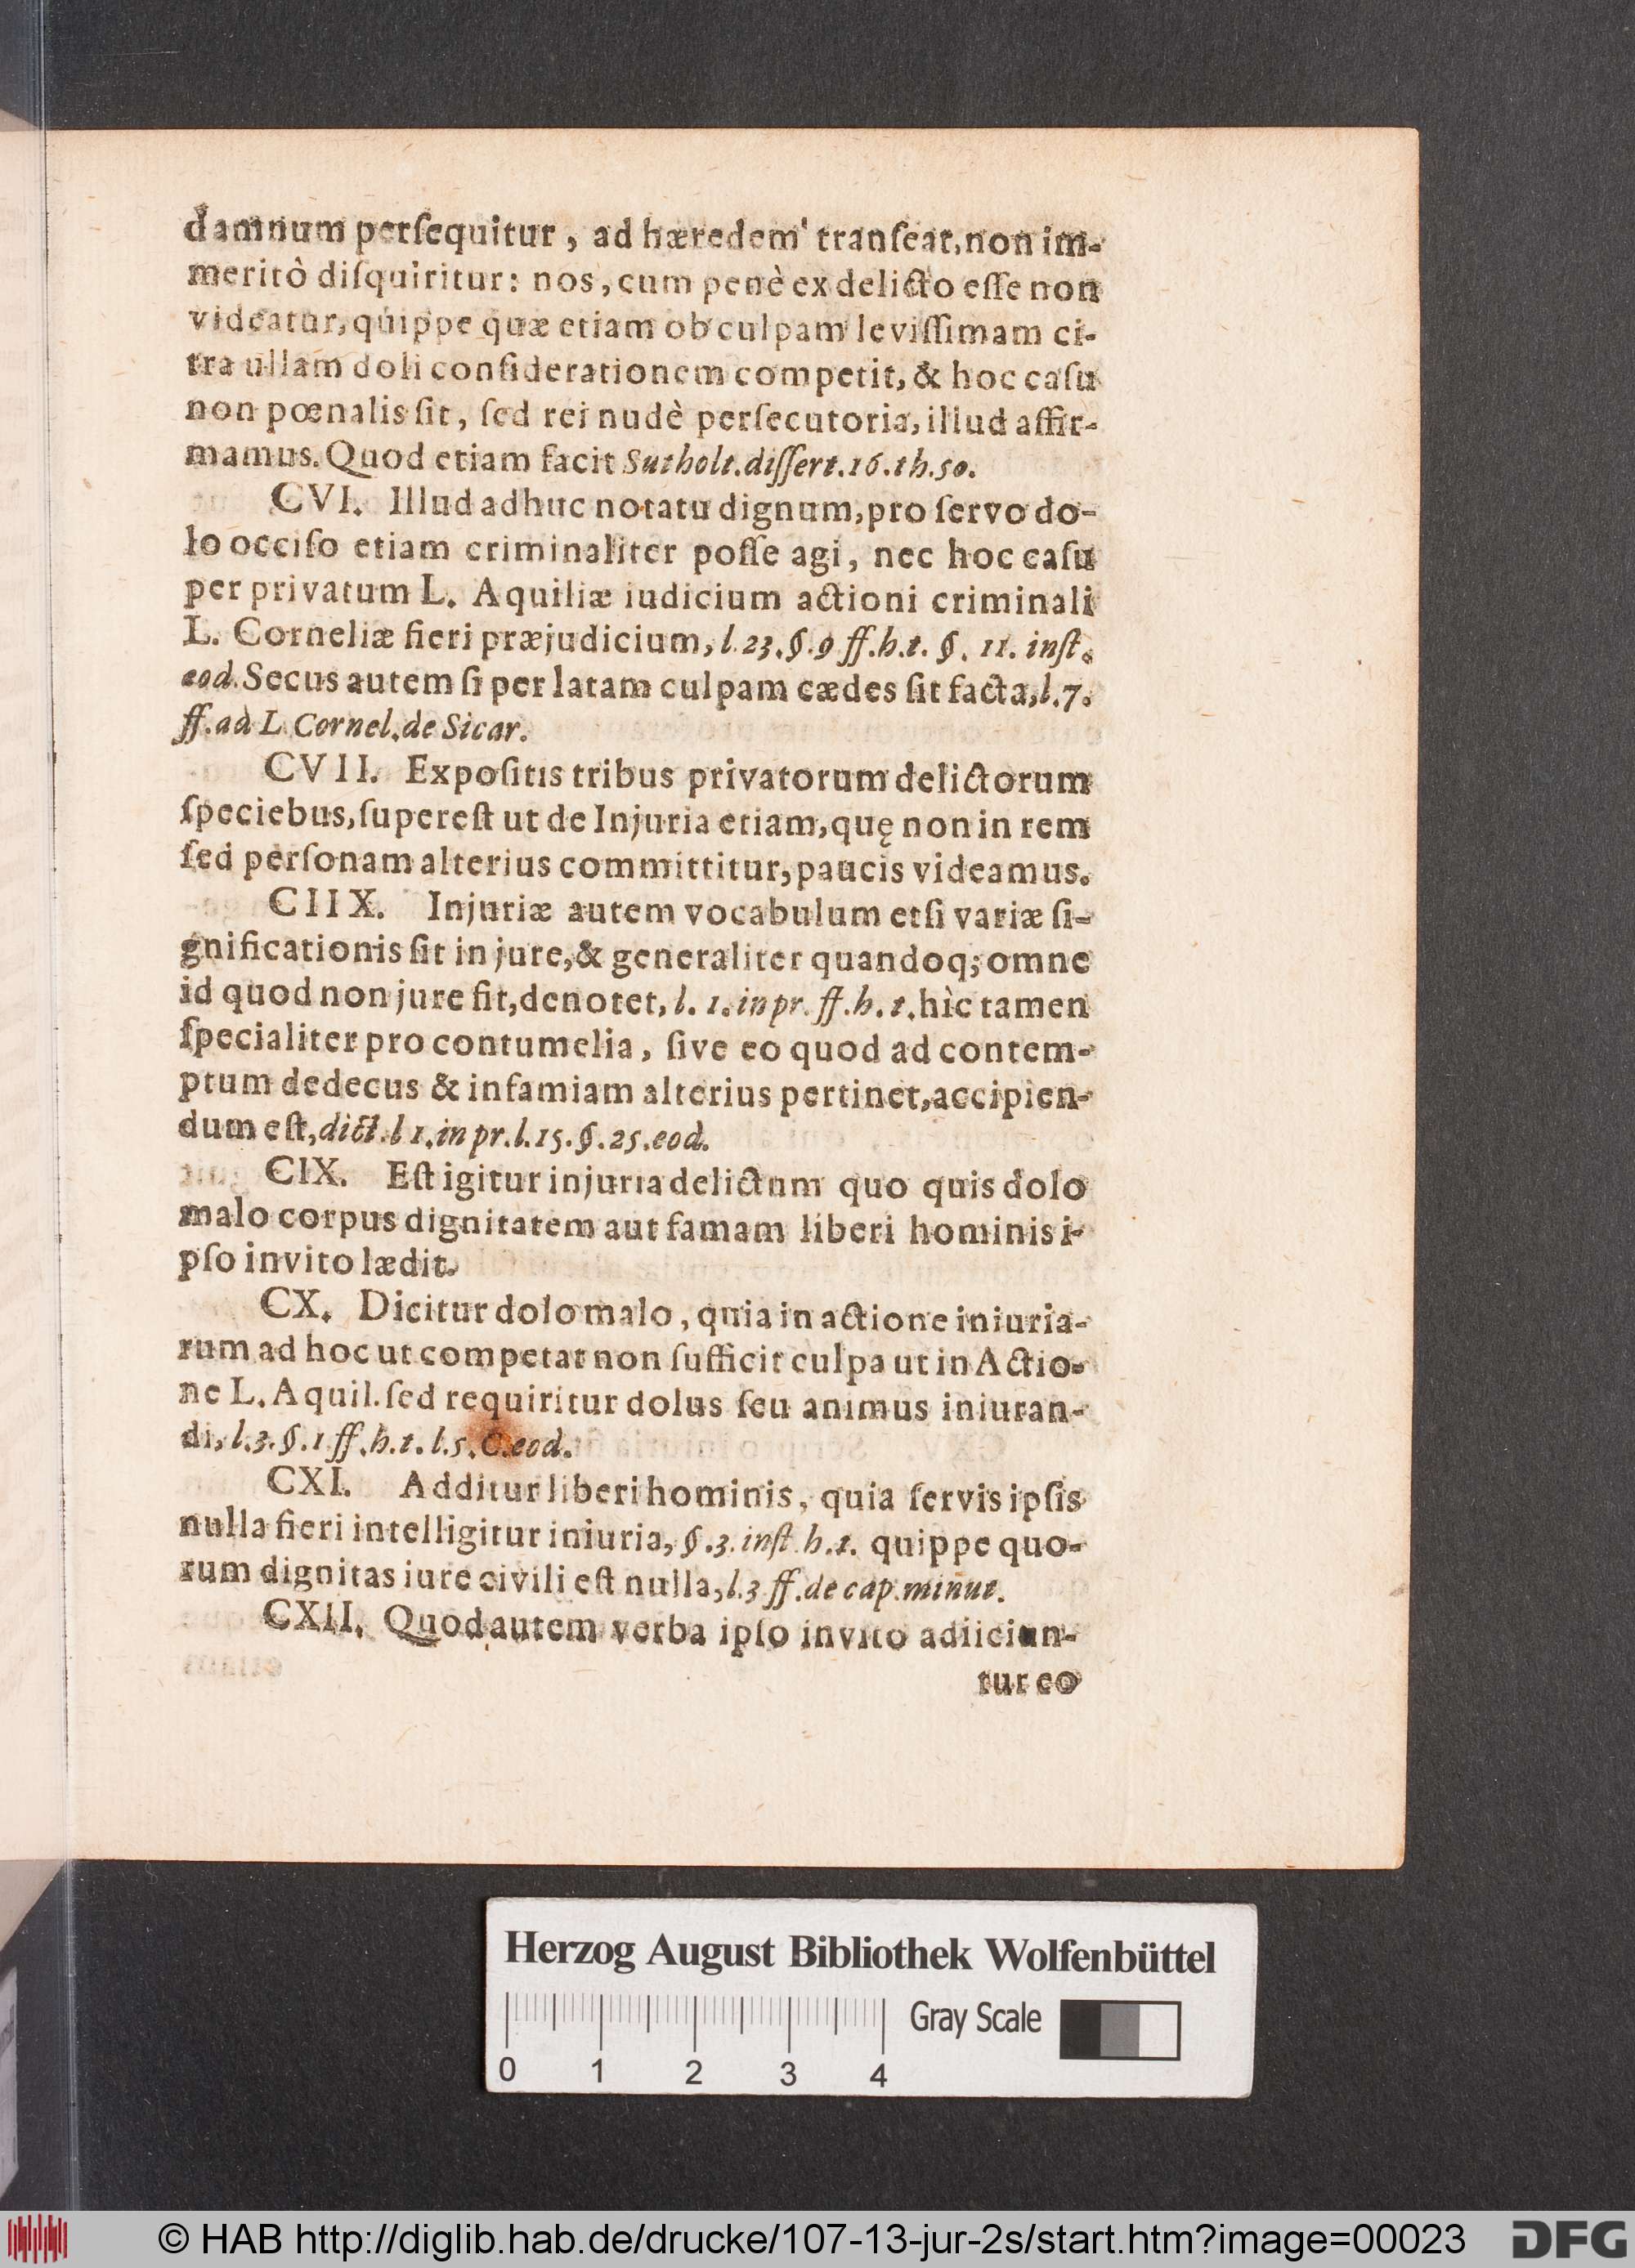 damnum perſequitur, ad hæredem tranſeat, non im-
meritò diſquiritur: nos, cum penè ex delicto eſſe non
videatur, quippe quæ etiam ob culpam leviſſimam ci-
tra ullam doli conſiderationem competit, & hoc caſu
non pœnalis ſit, ſed rei nudè perſecutoria, illud affir-
mamus. Quod etiam facit Sutholt. diſſert. 16. th. 50.
CVI. Illud adhuc notatu dignum, pro ſervo do-
lo occiſo etiam criminaliter poſſe agi, nec hoc caſu
per privatum L. Aquiliæ iudicium actioni criminali
L. Corneliæ fieri præjudicium, l. 23. §. 9 ff. h. t. §. 11. inſt.
eod. Secus autem ſi per latam culpam cædes ſit facta, l. 7.
ff. ad L. Cornel. de Sicar.
CVII. Expoſitis tribus privatorum delictorum
ſpeciebus, ſupereſt ut de Injuria etiam, quę non in rem
ſed perſonam alterius committitur, paucis videamus.
CIIX. Injuriæ autem vocabulum etſi variæ ſi-
gnificationis ſit in jure, & generaliter quandoq; omne
id quod non jure fit, denotet, l. 1. in pr. ff. h. t. hìc tamen
ſpecialiter pro contumelia, ſive eo quod ad contem-
ptum dedecus & infamiam alterius pertinet, accipien-
dum eſt, dict. l 1. in pr. l. 15. §. 25. eod.
CIX. Eſt igitur injuria delictum quo quis dolo
malo corpus dignitatem aut famam liberi hominis i-
pſo invito lædit.
CX. Dicitur dolo malo, quia in actione iniuria-
rum ad hoc ut competat non ſufficit culpa ut in Actio-
ne L. Aquil. ſed requiritur dolus ſeu animus iniuran-
di, l. 3. §. 1 ff. h. t. l. 5. C. eod.
CXI. Additur liberi hominis, quia ſervis ipſis
nulla fieri intelligitur iniuria, §. 3. inſt. h. t. quippe quo-
rum dignitas iure civili eſt nulla, l. 3 ff. de cap. minut.
CXII. Quod autem verba ipſo invito adiiciun-
tur eo
Herzog August Bibliothek Wolfenbüttel
Gray Scale
0 1 2 3 4
© HAB http://diglib.hab.de/drucke/107-13-jur-2s/start.htm?image=00023
DFG